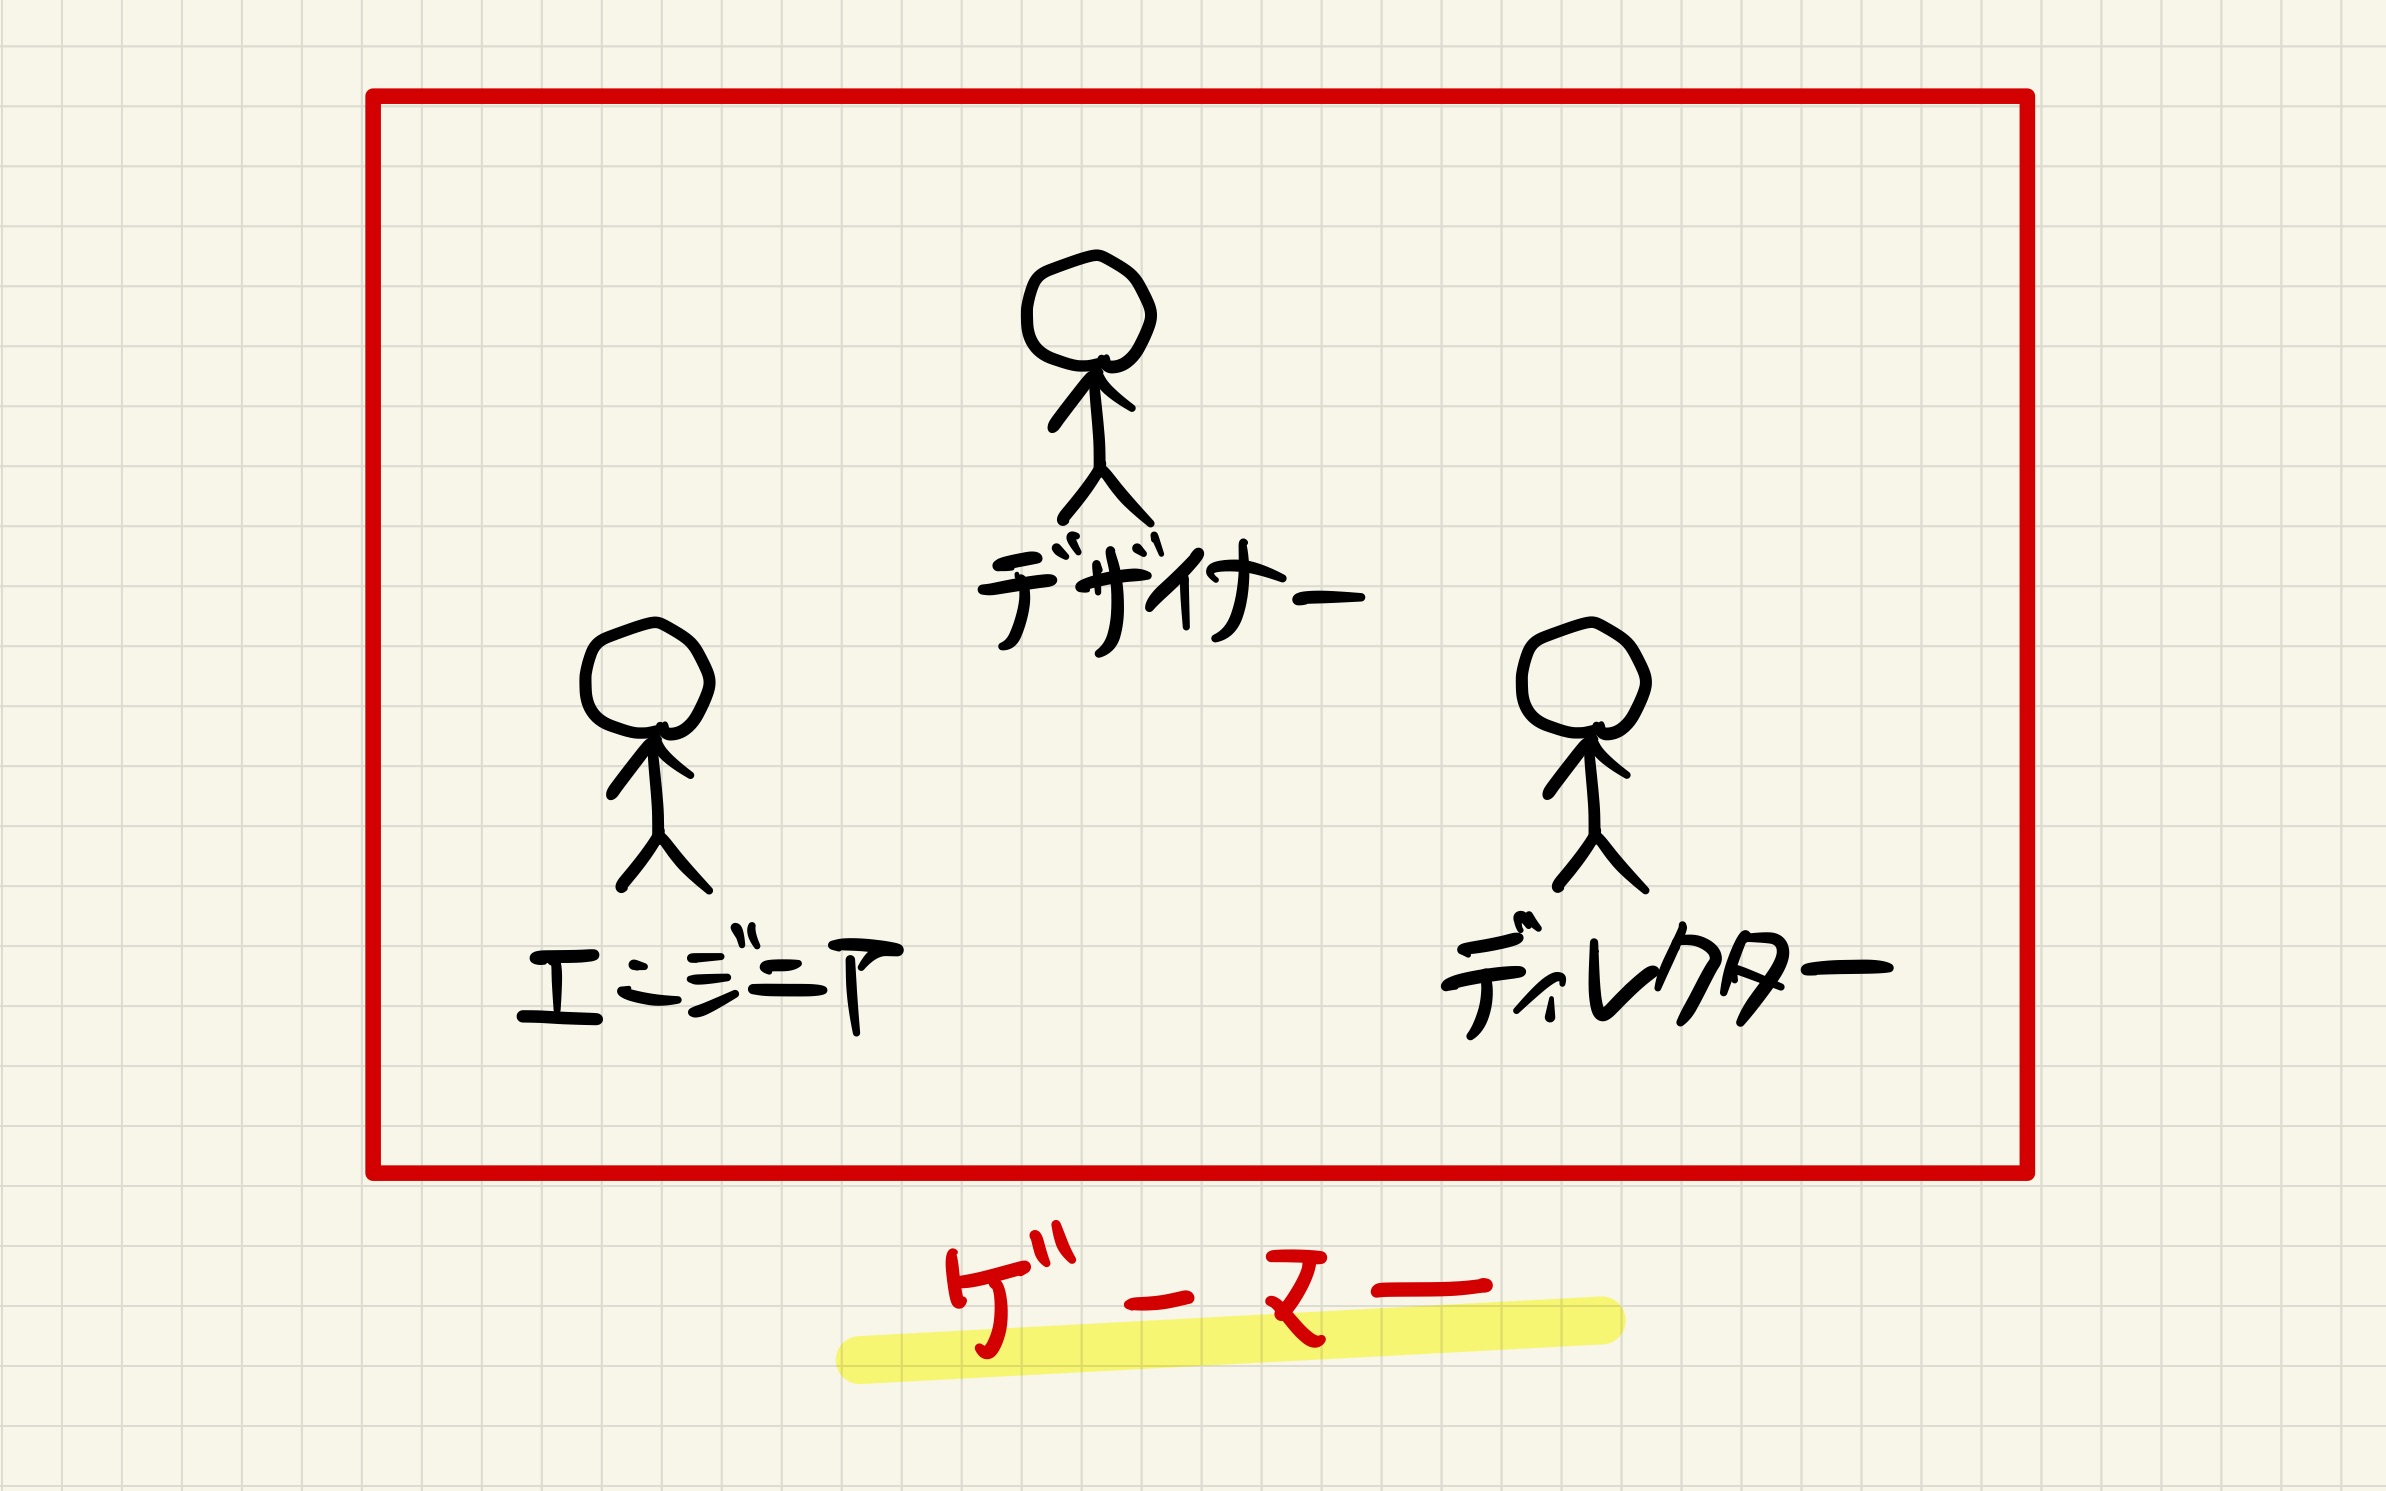 デザイナー
エンジニア
ディレクター
ゲーヌー